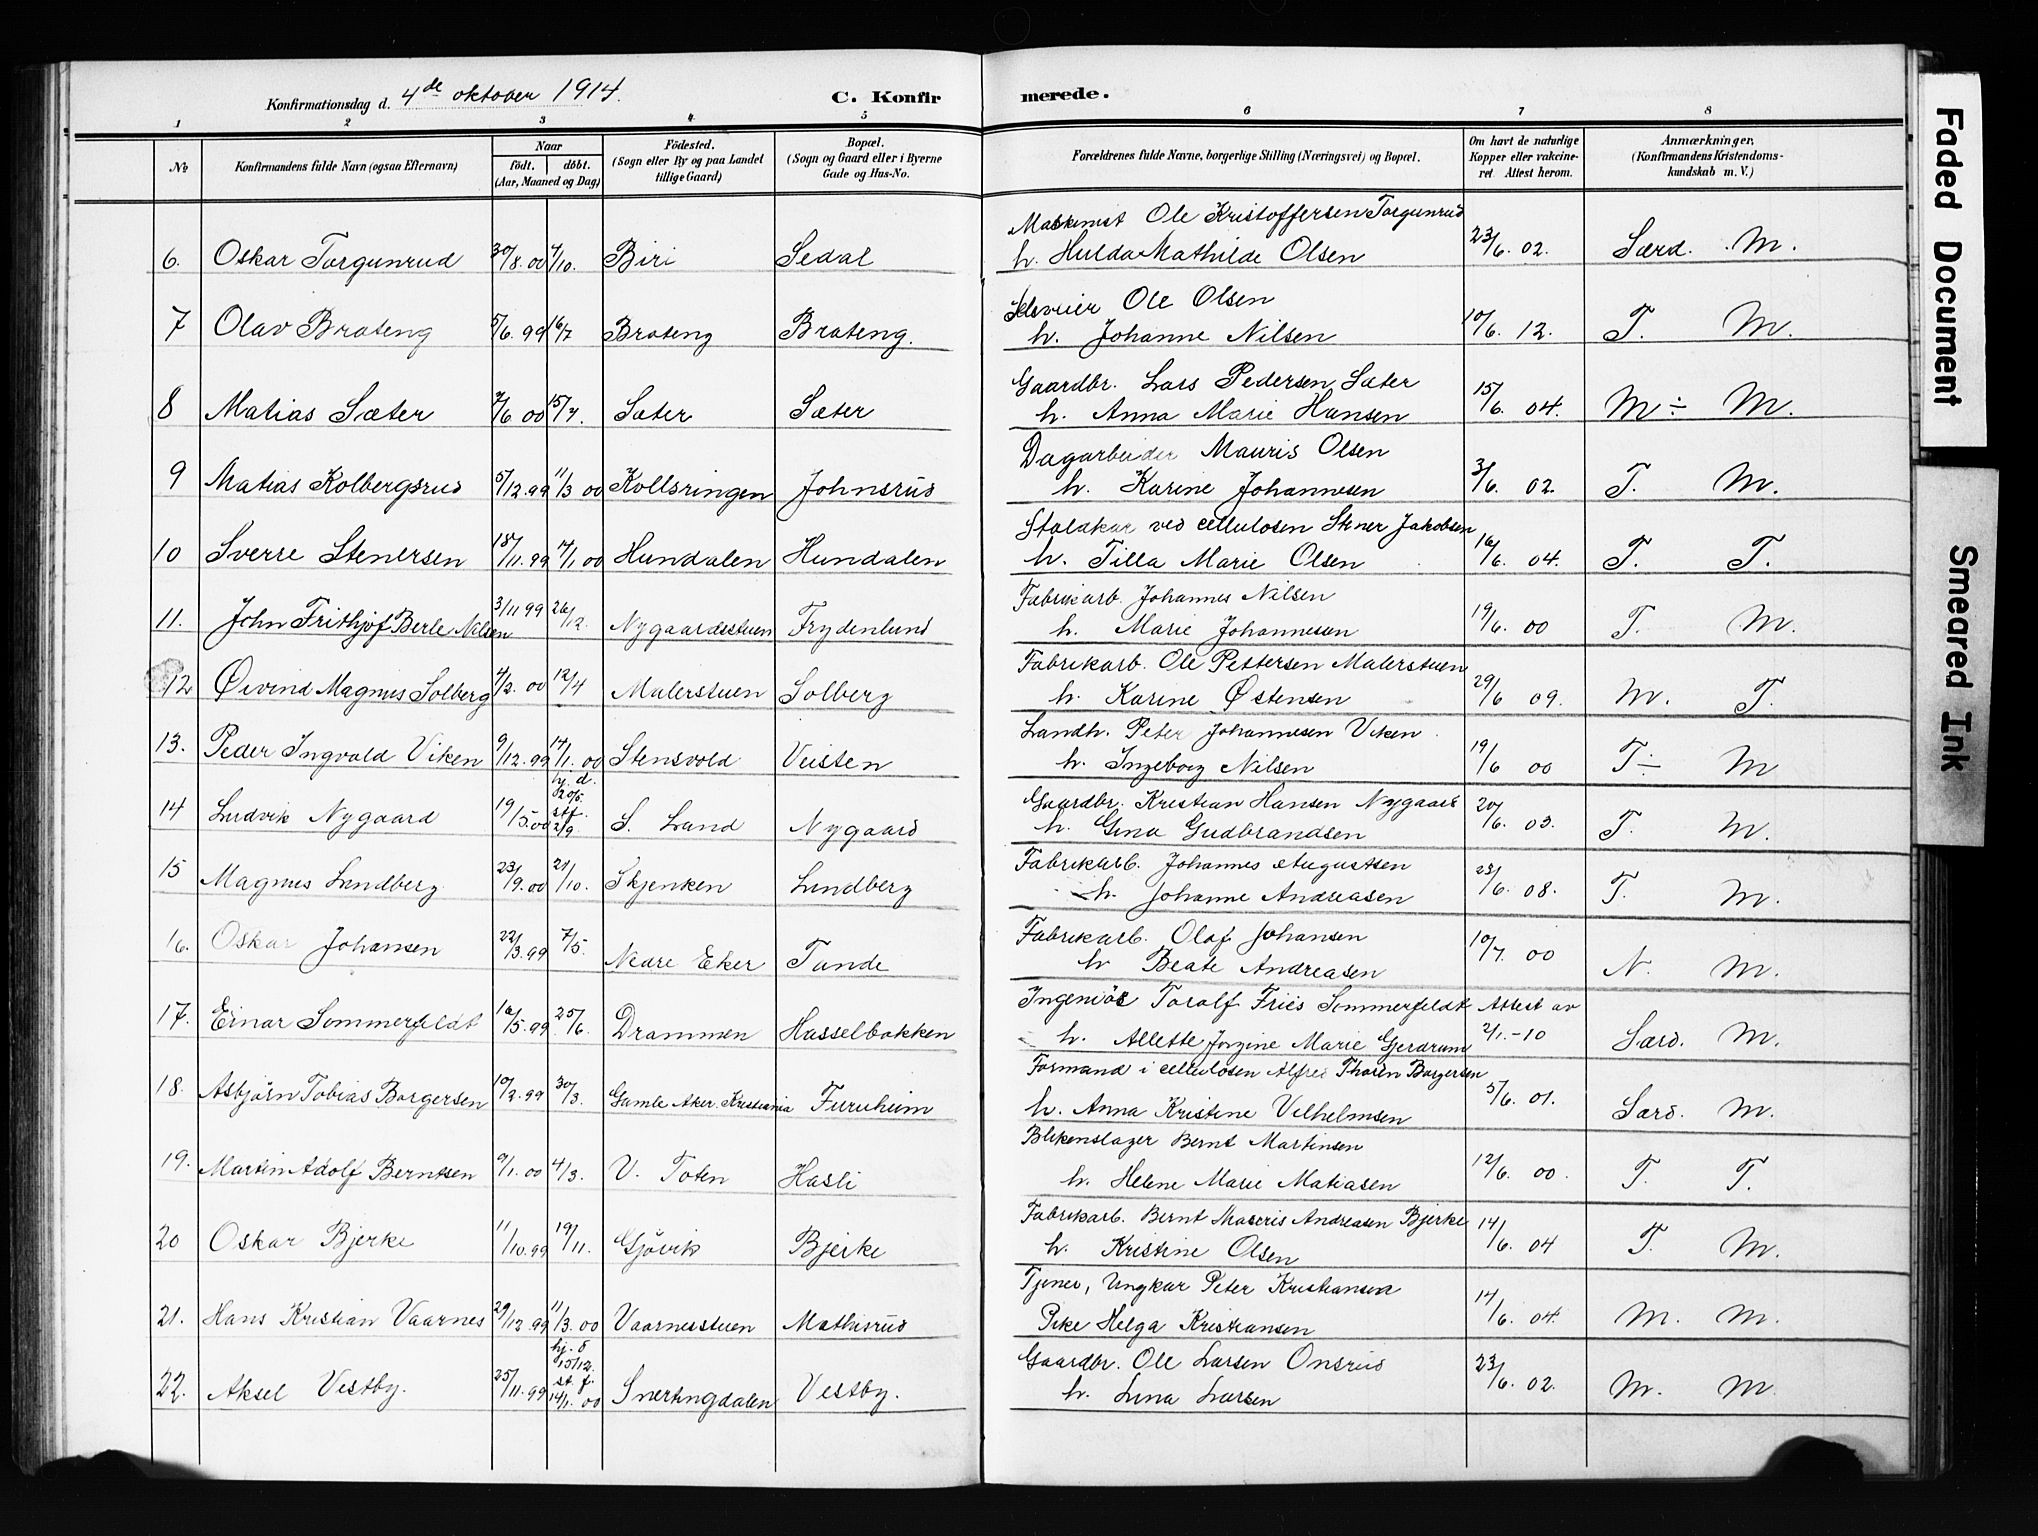 Konfirmationsdag d. 4de oktober 1914. C. Konfirmerede.
1 2 3 4 5 6 7 8
No Konfirmandens fulde Navn (ogsaa Efternavn) Naar født. døbt. (Aar, Maaned og Dag) Födested. (Sogn eller By og paa Landet tillige Gaard) Bopæl. (Sogn og Gaard eller i Byerne Gade og Hus-No. Forældrenes fulde Navne, borgerlige Stilling (Næringsvei) og Bopæl. Om havt de naturlige Kopper eller vakcineret. Attest herom. Anmærkninger, (Konfirmandens Kristendomskundskab m. V.)
Maskinist Ole Kristoffersen Torgunrud
6. Oskar Torgunrud 30/8. 00 7/10. Biri Sedal h. Hulda Mathilde Olsen 23/6. 02. Særd. M.
Selveier Ole Olsen
7 Olav Brateng 5/6. 99 16/7 Brateng Brateng. h. Johanne Nilsen 10/6. 12. T. M.
Gaardbr. Lars Pedersen Sæter
8 Matias Sæter 7/6 00 15/7. Sæter Sæter h. Anna Marie Hansen 15/6. 04. M ÷ M.
Dagarbeider Mauris Olsen
9 Matias Kolbergsrud 5/12.99 11/3 00 Kollsringen Johnsrud h. Karine Johannesen 3/6. 02. T. M.
Staldkar ved cellulosen Stener Jakobsen
10 Sverre Stenersen 18/11.99 14/1 00 Hundalen Hundalen h. Tilla Marie Olsen 16/6. 04. T. T.
Fabrikarb. Johannes Nilsen
11. John Frithjof Berle Nilsen 3/11 99 26/12. Nygaardsstuen Frydenlund h. Marie Johannesen 19/6. 00 T. M.
Fabrikarb. Ole Pettersen Malerstuen
12 Øivind Magnus Solberg 4/2. 00 12/4 Malerstuen Solberg h. Karine Østensen 29/6 09. M. T.
Landh. Peter Johannesen Viken
13. Peder Ingvald Viken 9/12.99 14/1. 00 Stensvold Veisten h. Ingeborg Nilsen 19/6 00 T ÷ M
Gaardbr. Kristian Hansen Nygaard
14 Ludvik Nygaard 19/5.00 hj. d. 20/5. stf. 2/9. S. Land Nygaard h. Gina Gudbrandsen 20/6. 03. T. M.
Fabrikarb. Johannes Augustsen
15 Magnus Lundberg 23/9.00 21/10. Skjenken Lundberg h. Johanne Andreasen 23/6. 08. T. M.
Fabrikarb. Olaf Johansen
16. Oskar Johansen 22/3.99 7/5. Nedre Eker Tande h. Beate Andreasen 10/7. 00 N. M.
Ingeniør Toralf Friis Sommerfeldt Attest av
17. Einar Sommerfeldt 16/5.99 25/6. Drammen Hasselbakken h. Allette Jørgine Marie Gjerdrum 2/1.-10 Særd. M.
Formand i cellulosen Alfred Thoren Borgersen
18. Asbjørn Tobias Borgersen 10/2.99 30/3. Gamle Aker. Kristiania Furuheim h. Anna Kristine Vilhelmsen 5/6. 01. Særd. M.
Blikenslager Bernt Martinsen
19. Martin Adolf Berntsen 9/1. 00 4/3. V. Toten Hasli h. Helene Marie Matiasen 12/6. 00. T. T.
Fabrikarb. Bernt Maseris Andreasen Bjerke
20 Oskar Bjerke 11/10.99 19/11. Gjøvik Bjerke h. Kristine Olsen 14/6. 04 T. M.
Tjener, Ungkar Peter Kristiansen
21. Hans Kristian Vaarnes 29/12.99 11/3. 00 Vaarnesstuen Mathisrud Pike Helga Kristiansen 14/6. 04. M. M.
Gaardbr. Ole Larsen Onsrud
22. Aksel Vestby. 25/11.99 hj. d 15/12. st. f. 14/1. 00 Snertingdalen Vestby. h. Lina Larsen 23/6. 02. M. M.
Faded Document
Smeared Ink